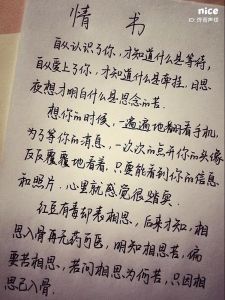 nice
情书
自从认识了你，才知道什么是等待，
自从爱上了你，才知道什么是牵挂，日思
夜想才明白什么是思念的苦。
想你的时候，一遍遍地翻看手机，
为了等你的消息，一次次的点开你的头像
反反覆覆地看着，只要能看到你的信息
和照片，心里就感觉很踏实。
红豆有毒却名相思，后来才知，相
思入骨再无药可医，明知相思苦，偏
要苦相思，若问相思为何苦，只因相
思已入骨.